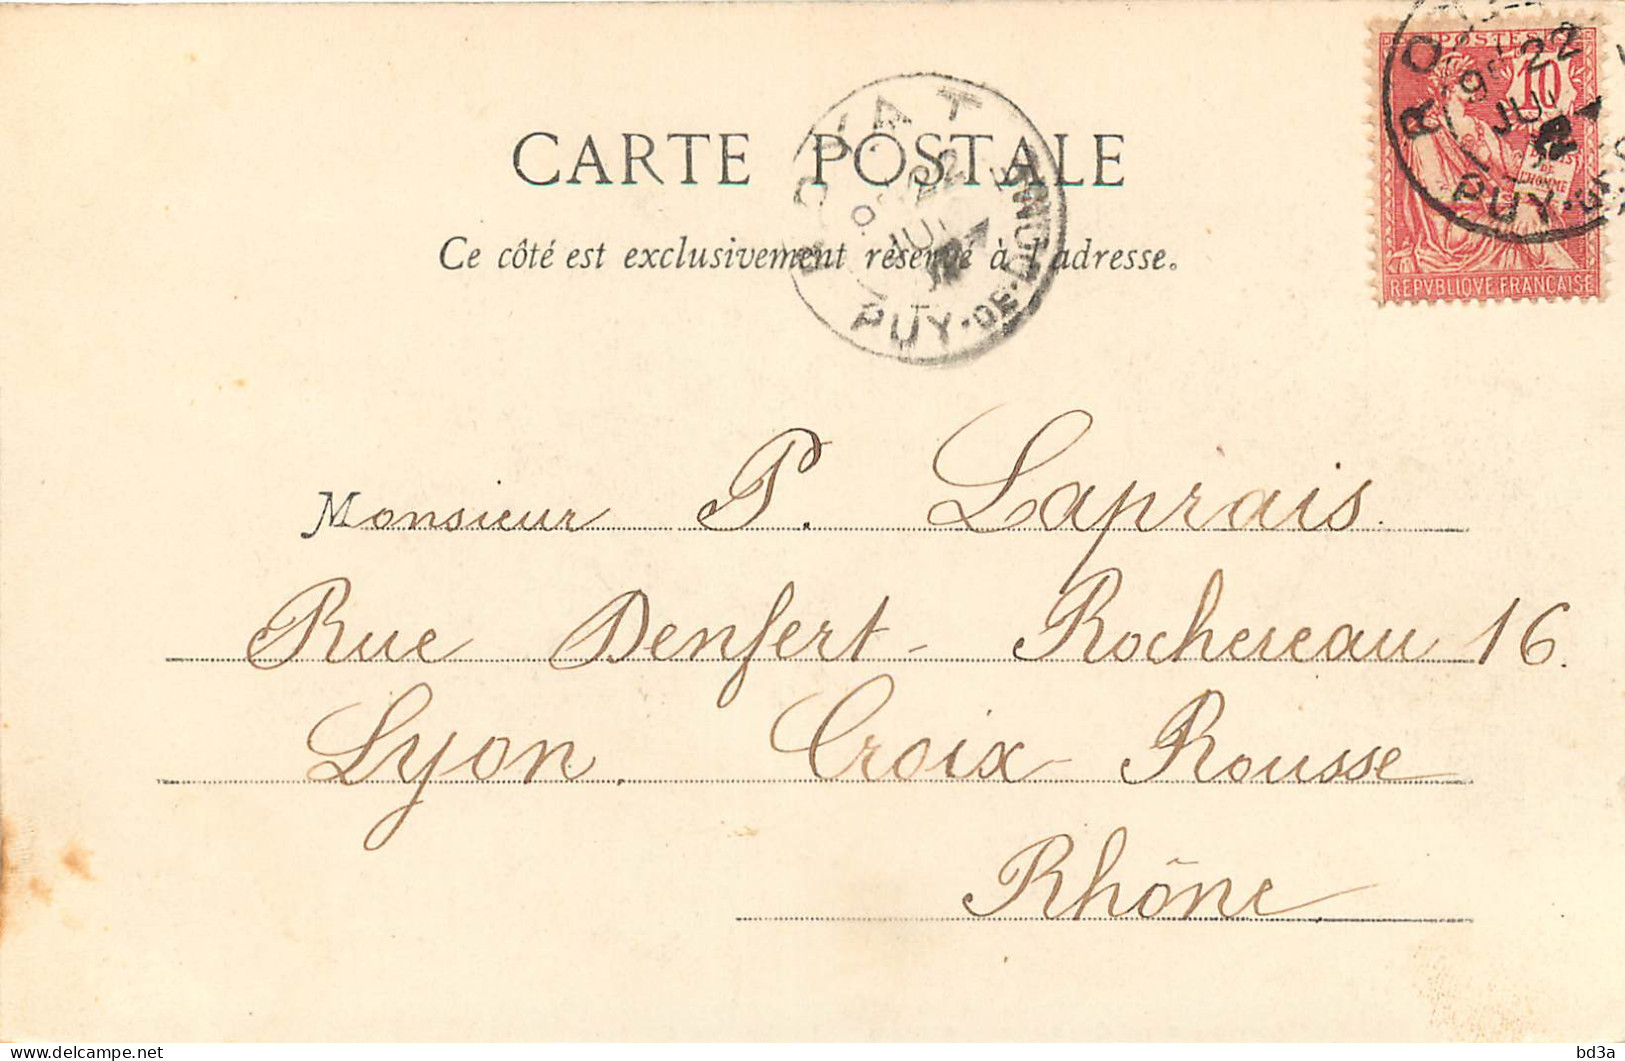 CARTE POSTALE
Ce côté est exclusivement réservé à l'adresse.
ROYAT
22
JUIL
PUY-DE-DÔME
POSTES
10
DE
L'HOMME
REPVBLIQVE FRANÇAISE
22
JUIL
PUY-DE-
Monsieur P. Laprais.
Rue Denfert-Rochereau 16.
Lyon, Croix-Rousse
Rhône
bd3a